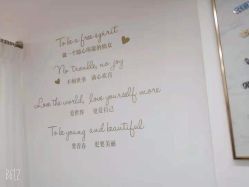 To be a free spirit
做一个随心所欲的精灵
No trouble, no joy
不相世事 满心欢喜
Love the world, love yourself more
爱世界 更爱自己
To be young and beautiful
要青春 更要美丽